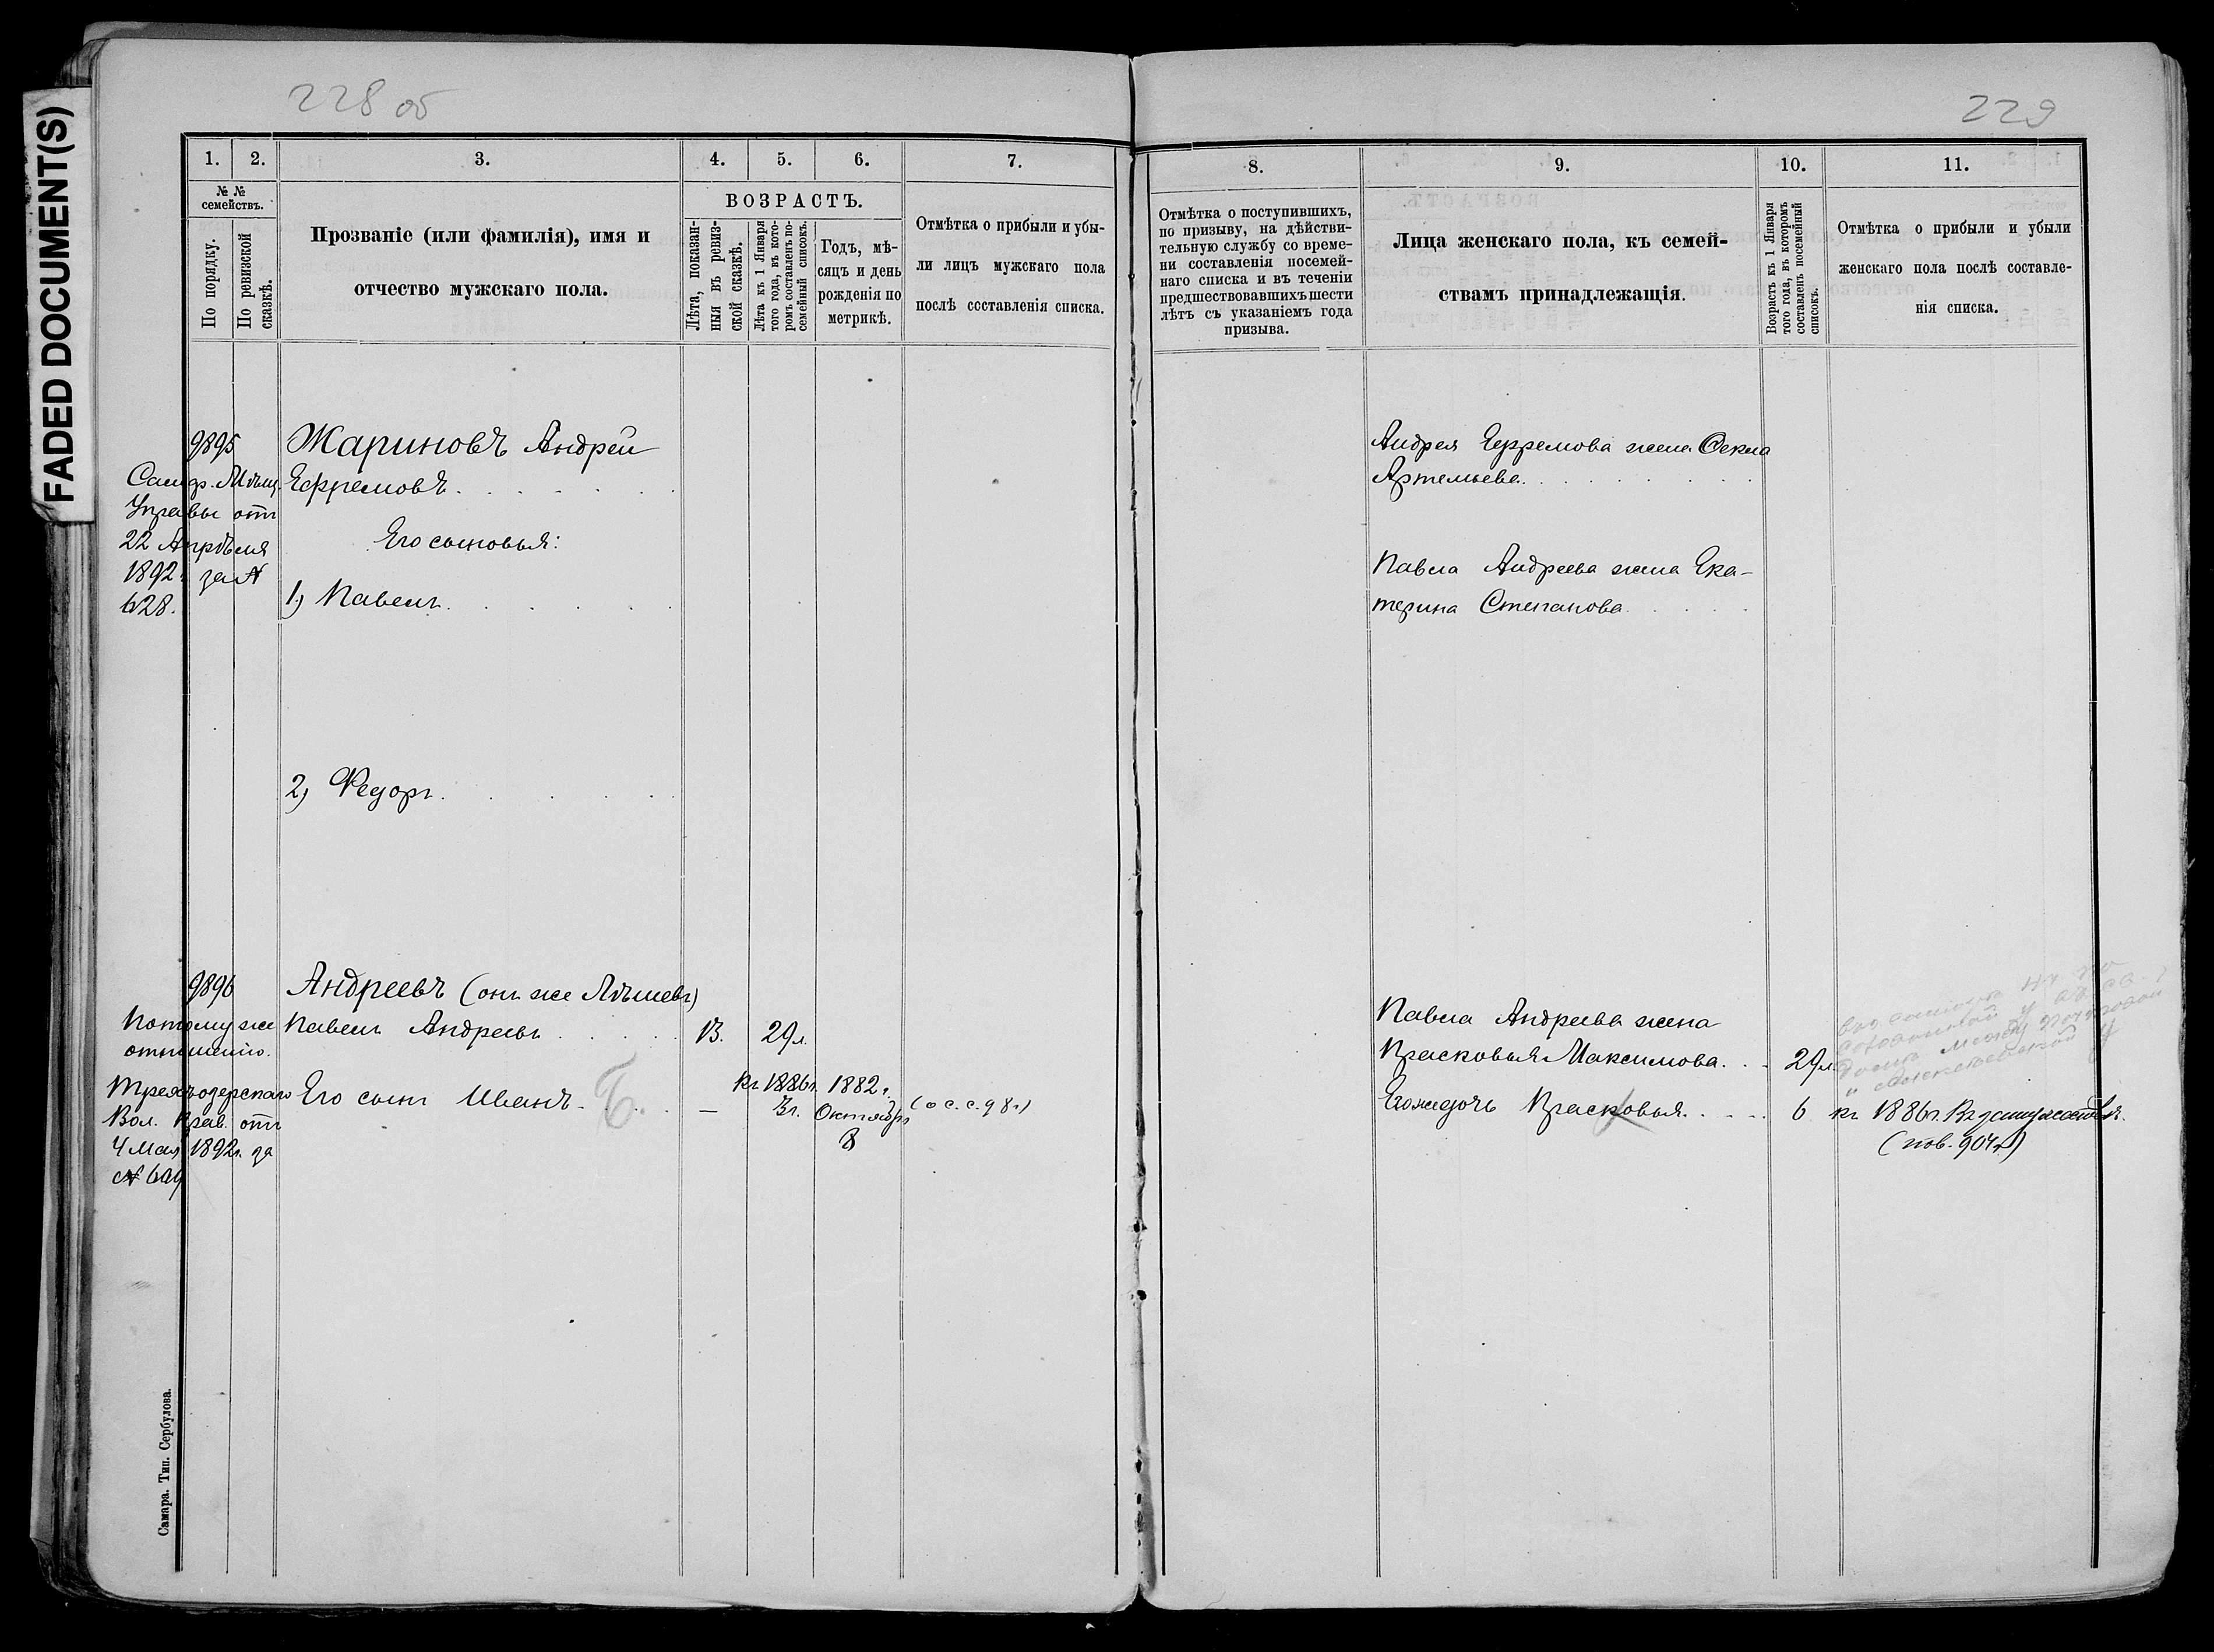 FADED DOCUMENT(S)
228 об
1. 2. 3. 4. 5. 6. 7.
№ №
семействъ.
По порядку.
По ревизской
сказкѣ.
Прозваніе (или фамилія), имя и
отчество мужскаго пола.
ВОЗРАСТЪ.
Лѣта, показан-
ныя въ ревиз-
ской сказкѣ.
Лѣта къ 1 Января
того года, въ кото-
ромъ составленъ по-
семейный списокъ.
Годъ, мѣ-
сяцъ и день
рожденія по
метрикѣ.
Отмѣтка о прибыли и убы-
ли лицъ мужскаго пола
послѣ составленія списка.
9895 Жариновъ Андрей
Самар. Мѣщ. Ефремовъ
Управы отъ
22 Апрѣля Его сыновья:
1892 г. за №
628. 1) Павелъ
2) Федоръ
9896 Андреевъ (онъ же
Потому же Павелъ Андреевъ 13. 29 л.
отношенію.
Его сынъ Иванъ Б. — къ 1886 г. 3 г. 1882 г. Октября 8 (о с. с. 98 г)
Вол. Прав. отъ
4 Мая 1892 г. за
№
Самара. Тип. Сербулова.
229
8. 9. 10. 11.
Отмѣтка о поступившихъ,
по призыву, на дѣйстви-
тельную службу со време-
ни составленія посемей-
наго списка и въ теченіи
предшествовавшихъ шести
лѣтъ съ указаніемъ года
призыва.
Лица женскаго пола, къ семей-
ствамъ принадлежащія.
Возрастъ къ 1 Января
того года, въ которомъ
составленъ посемейный
списокъ.
Отмѣтка о прибыли и убыли
женскаго пола послѣ составле-
нія списка.
Андрея Ефремова жена Фекла
Артемьева
Павла Андреева жена Ека-
терина Степанова
Павла Андреева жена
Прасковья Максимова 29 л.
Его же дочь Прасковья 6 къ 1886 г. Въ замужествѣ.
(пов. 904 г)